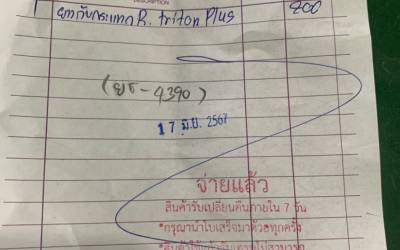 DESCRIPTION
1 ยางกันกระแทก R. triton Plus 200
(ยธ-4390)
17 มิ.ย. 2567
จ่ายแล้ว
สินค้ารับเปลี่ยนคืนภายใน 7 วัน
*กรุณานำใบเสร็จมาด้วยทุกครั้ง